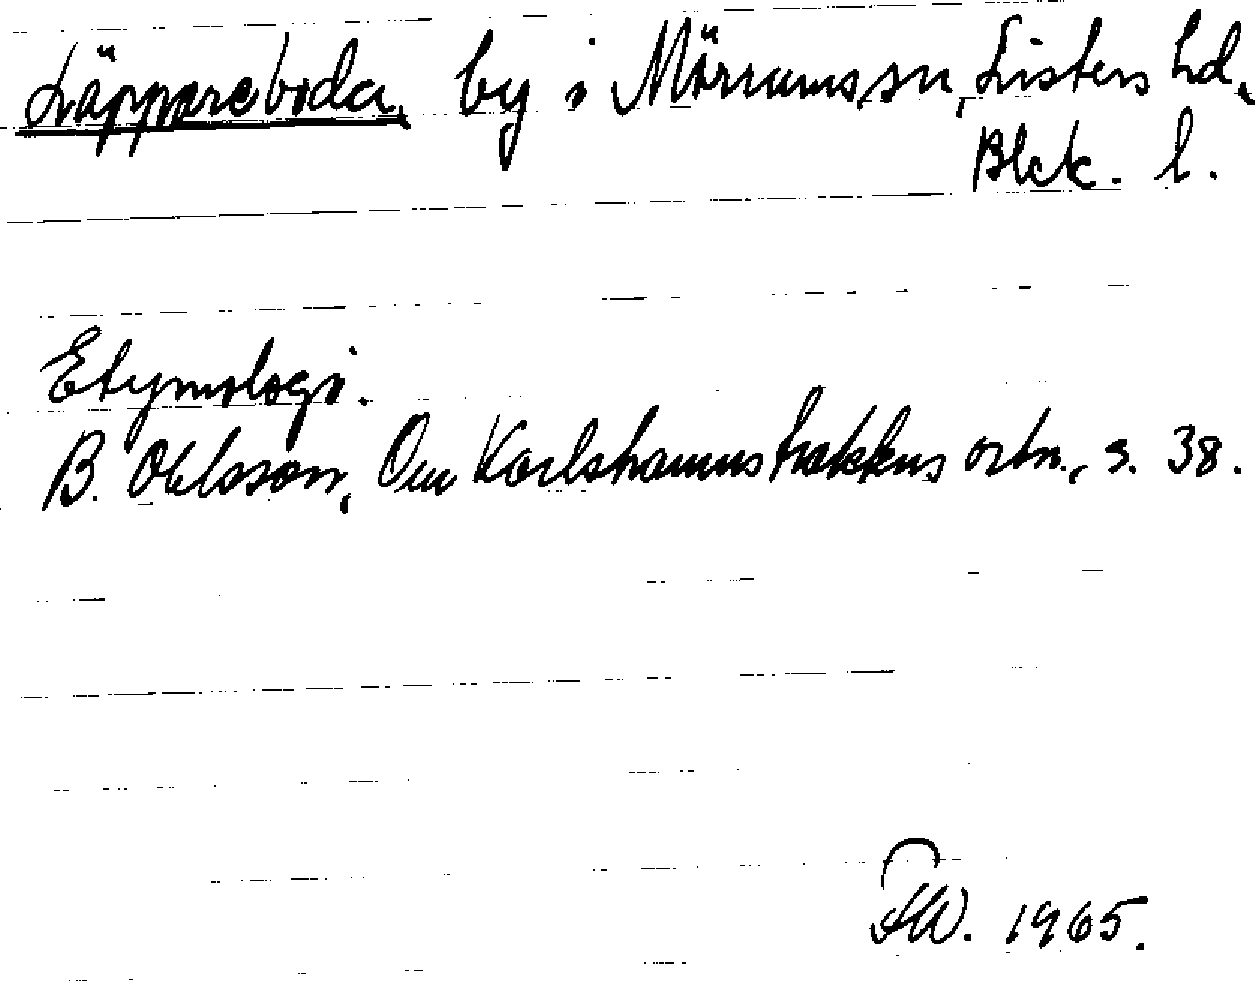 Läppareboda, by i Mörrums sn, Listers hd,
Blek. l.
Etymologi.
B. Ohlsson, Om Karlshamnstraktens ortn., s. 38.
1965.